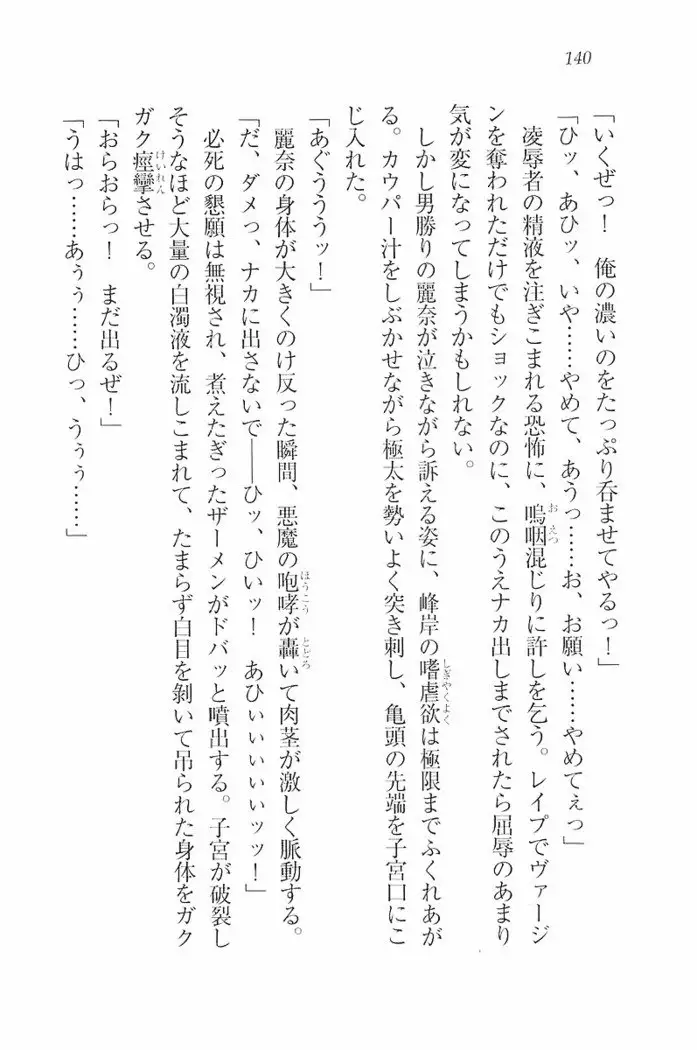 140
「いくぜっ！　俺の濃いのをたっぷり呑ませてやるっ！」
「ひッ、あひッ、いや……やめて、あうっ……お、お願い……やめてぇっ」
凌辱者の精液を注ぎこまれる恐怖に、嗚咽混じりに許しを乞う。レイプでヴァージ
ンを奪われただけでもショックなのに、このうえナカ出しまでされたら屈辱のあまり
気が変になってしまうかもしれない。
しかし男勝りの麗奈が泣きながら訴える姿に、峰岸の嗜虐欲は極限までふくれあが
る。カウパー汁をしぶかせながら極太を勢いよく突き刺し、亀頭の先端を子宮口にこ
じ入れた。
「あぐうううッ！」
麗奈の身体が大きくのけ反った瞬間、悪魔の咆哮が轟いて肉茎が激しく脈動する。
「だ、ダメっ、ナカに出さないで――ひッ、ひいッ！　あひぃぃぃぃぃッッ！」
必死の懇願は無視され、煮えたぎったザーメンがドバッと噴出する。子宮が破裂し
そうなほど大量の白濁液を流しこまれて、たまらず白目を剝いて吊られた身体をガク
ガク痙攣させる。
「おらおらっ！　まだ出るぜ！」
「うはっ……あぅぅ……ひっ、うぅぅ……」